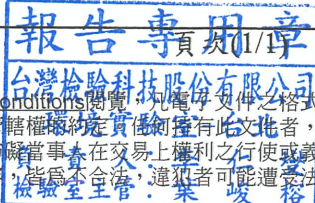 報告專用章
頁次(1/1)
台灣檢驗科技股份有限公司
onditions閱覽，凡電子文件之格式
轄權的約定，任何持有此文件者，
環境實驗室-台北
礙當事人在交易上權利之行使或義
負責人：
，皆為不合法，違犯者可能遭受法
檢驗室主管：葉